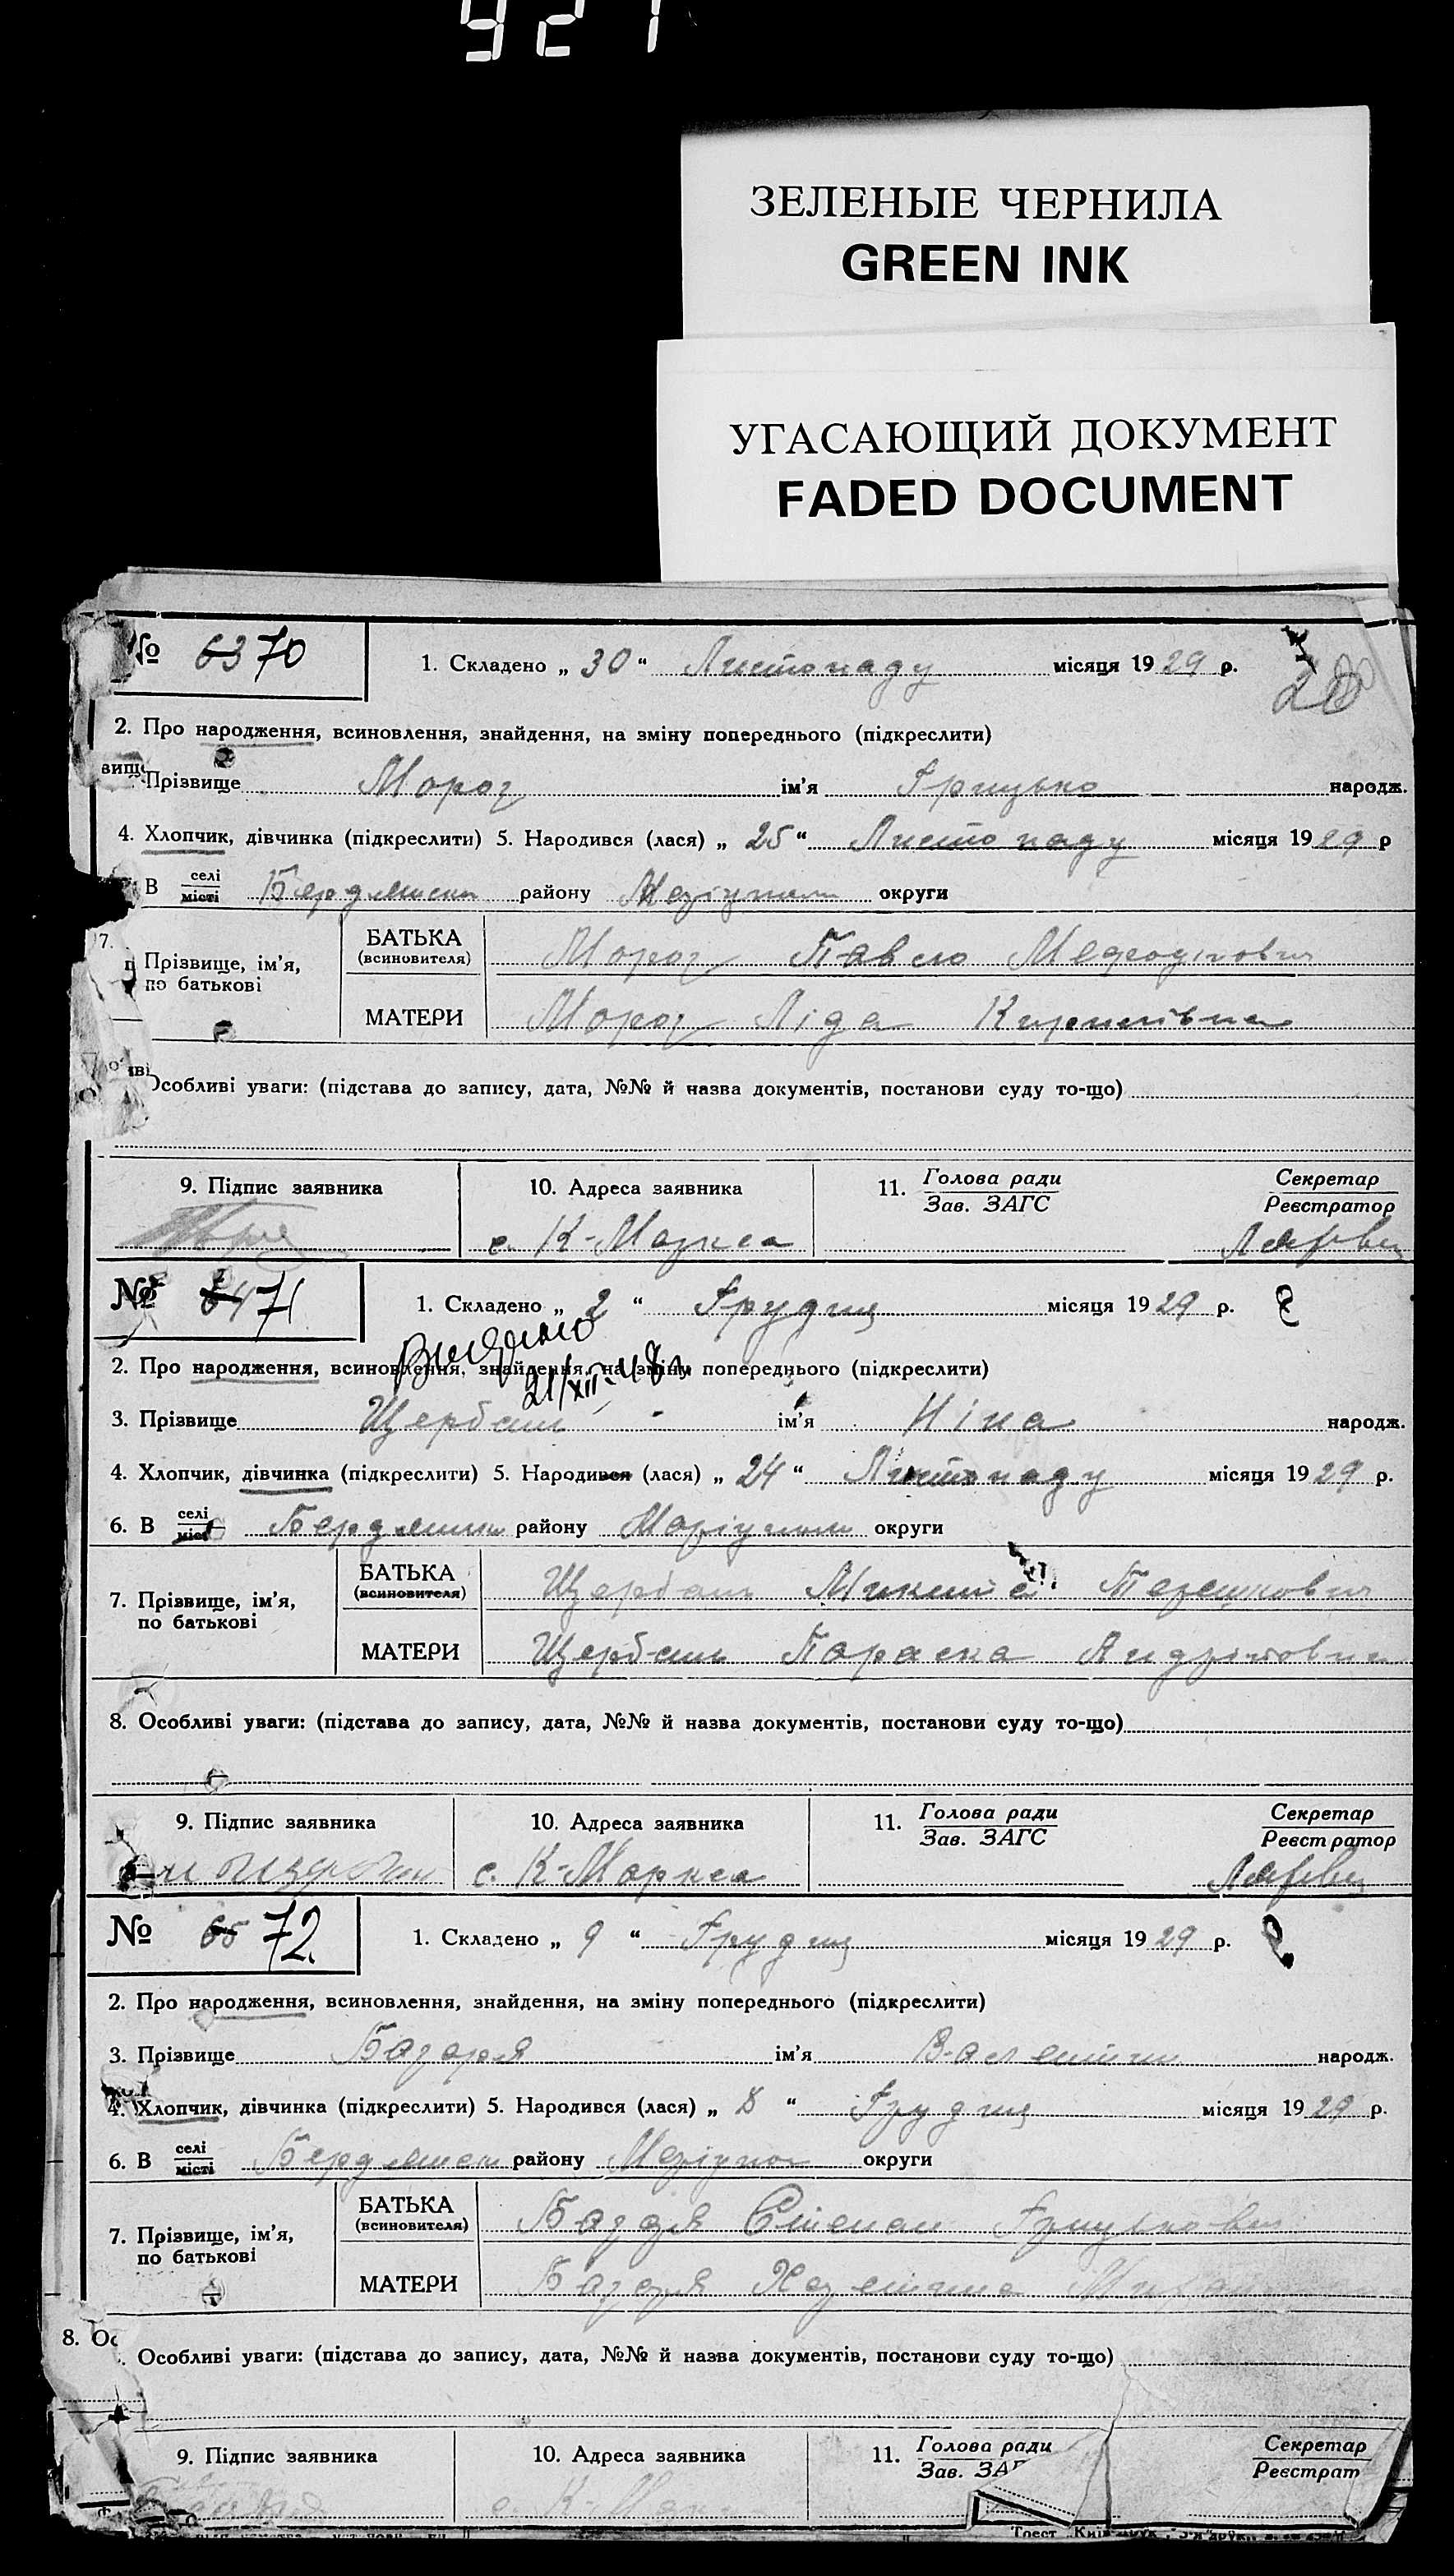 921
ЗЕЛЕНЫЕ ЧЕРНИЛА
GREEN INK
УГАСАЮЩИЙ ДОКУМЕНТ
FADED DOCUMENT
№ 63 70 1. Складено „ 30 “ Листопаду місяця 1929 р.
20
2. Про народження, всиновлення, знайдення, на зміну попереднього (підкреслити)
Прізвище Мороз ім’я Грицько народж.
4. Хлопчик, дівчинка (підкреслити) 5. Народився (лася) „ 25 “ Листопаду місяця 1929 р
В селі місті Бердянськ району Маріупол округи
7. Прізвище, ім’я, по батькові
БАТЬКА (всиновителя) Мороз Павло Мефодійович
МАТЕРИ Мороз Ліда
Особливі уваги: (підстава до запису, дата, №№ й назва документів, постанови суду то-що)
9. Підпис заявника 10. Адреса заявника 11. Голова ради Зав. ЗАГС Секретар Реєстратор
с. К-Маркса
№ 64 71 1. Складено „ 2 “ Грудня місяця 1929 р.
2. Про народження, всиновлення, знайдення, на зміну попереднього (підкреслити)
21/XII-48
3. Прізвище Щербань ім’я Ніна народж.
4. Хлопчик, дівчинка (підкреслити) 5. Народився (лася) „ 24 “ Листопаду місяця 1929 р.
6. В селі місті Бердянськ району Маріуполь округи
7. Прізвище, ім’я, по батькові
БАТЬКА (всиновителя) Щербань Микита
МАТЕРИ Щербань Параска Андріівна
8. Особливі уваги: (підстава до запису, дата, №№ й назва документів, постанови суду то-що)
9. Підпис заявника 10. Адреса заявника 11. Голова ради Зав. ЗАГС Секретар Реєстратор
с. К-Маркса
№ 65 72 1. Складено „ 9 “ Грудня місяця 1929 р.
2. Про народження, всиновлення, знайдення, на зміну попереднього (підкреслити)
3. Прізвище Базаря ім’я Валентин народж.
4. Хлопчик, дівчинка (підкреслити) 5. Народився (лася) „ 8 “ Грудня місяця 1929 р.
6. В селі місті Бердянськ району Маріупол округи
7. Прізвище, ім’я, по батькові
БАТЬКА (всиновителя) Базаря Степан Грицькович
МАТЕРИ Базаря
8. Ос
Особливі уваги: (підстава до запису, дата, №№ й назва документів, постанови суду то-що)
9. Підпис заявника 10. Адреса заявника 11. Голова ради Зав. ЗАГ Секретар Реєстрат
с. К-Мар